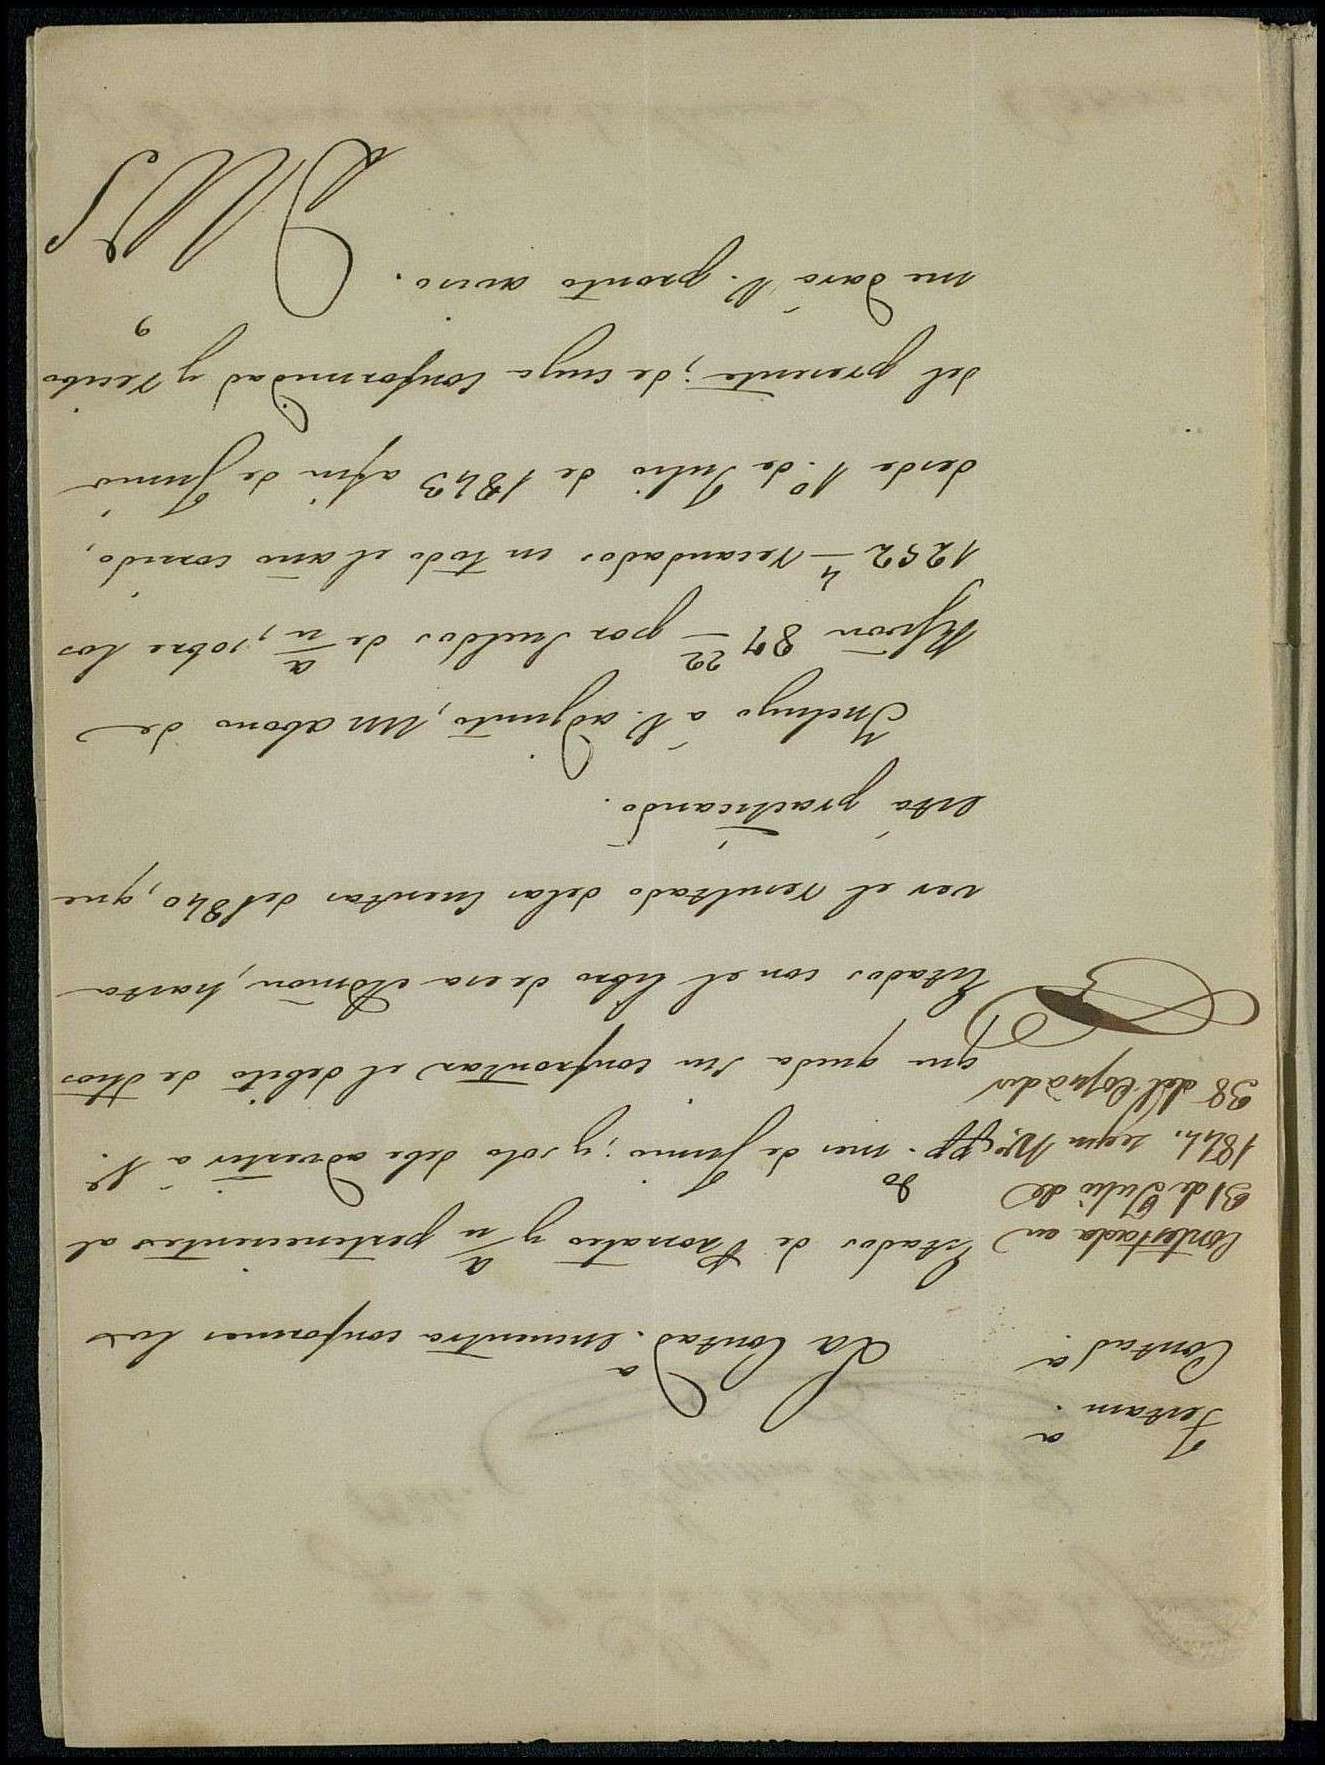 Testam.a
Contad.a
Contestada en
31 de Julio de
1844. segun Nº
38 del Copiador
La Contad.a encuentra conformes los
Estados de Prorrateo y a/n pertenecientes al
mes de Junio; y solo debe advertir a V.
que queda sin confrontar el debito de dhos
Estados con el libro de esa Admon, hasta
ver el resultado delas Cuentas del 840, que
está practicando.
Incluyo á V. adjunto, un abono de
87 22 por sueldos de a/n, sobre los
1252 4 recaudados en todo el año corrido,
desde 1º de Julio de 1843 afin de Junio
del presente; de cuya conformidad y recibo
me dará V. pronto aviso.